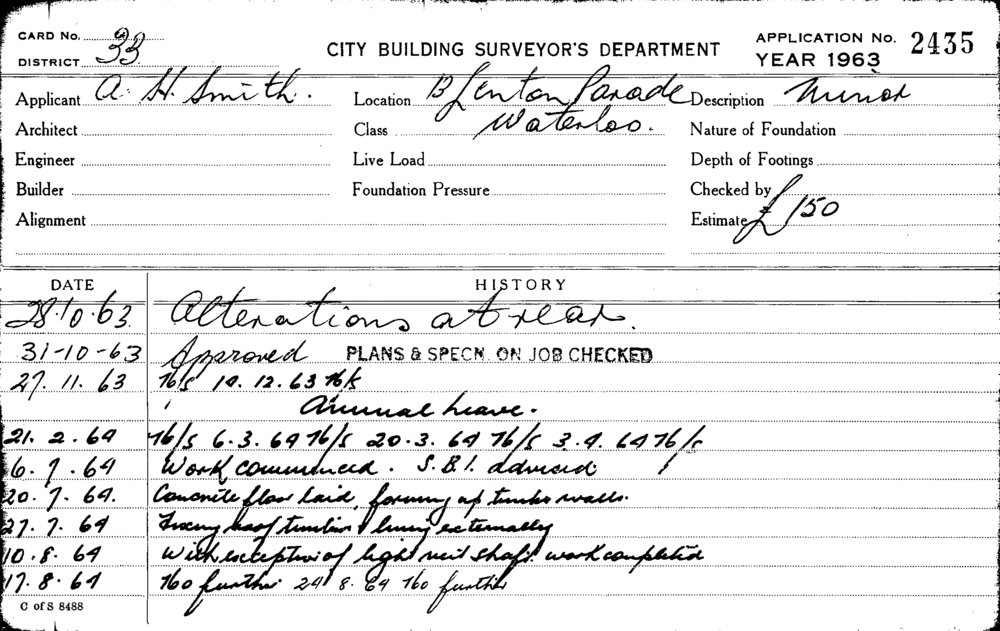 CARD No. 33
DISTRICT
CITY BUILDING SURVEYOR'S DEPARTMENT
APPLICATION No. 2435
YEAR 1963
Applicant A. H. Smith. Location Blenton Parade Description Minor
Architect Class Waterloo. Nature of Foundation
Engineer Live Load Depth of Footings
Builder Foundation Pressure Checked by
Alignment Estimate £150
DATE HISTORY
28.10.63 Alterations at rear.
31-10-63 Approved PLANS & SPECN. ON JOB CHECKED
27.11.63 N/S 14.12.63 N/S
Annual Leave.
21.2.64 N/S 6.3.64 N/S 20.3.64 N/S 3.4.64 N/S
6.7.64 Work commenced. S.B.I. advised
20.7.64. Concrete floor laid, forming up timber walls.
27.7.64 Fixing roof timbers & lining externally
10.8.64 With exception of light shaft work completed
17.8.64 No further 24 8.64 No further
C of S 8488